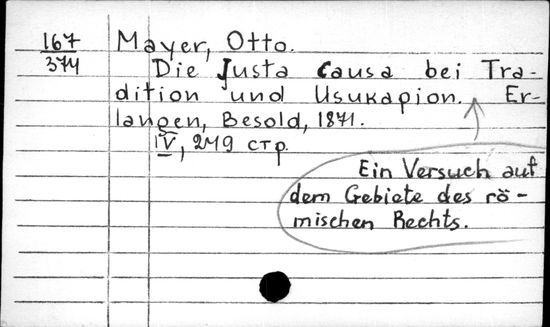 167
374
Mayer, Otto.
Die Justa Causa bei Tra-
dition und Usukapion. Er-
langen, Besold, 1871.
IV, 219 стр.
Ein Versuch auf
dem Gebiete des rö-
mischen Rechts.